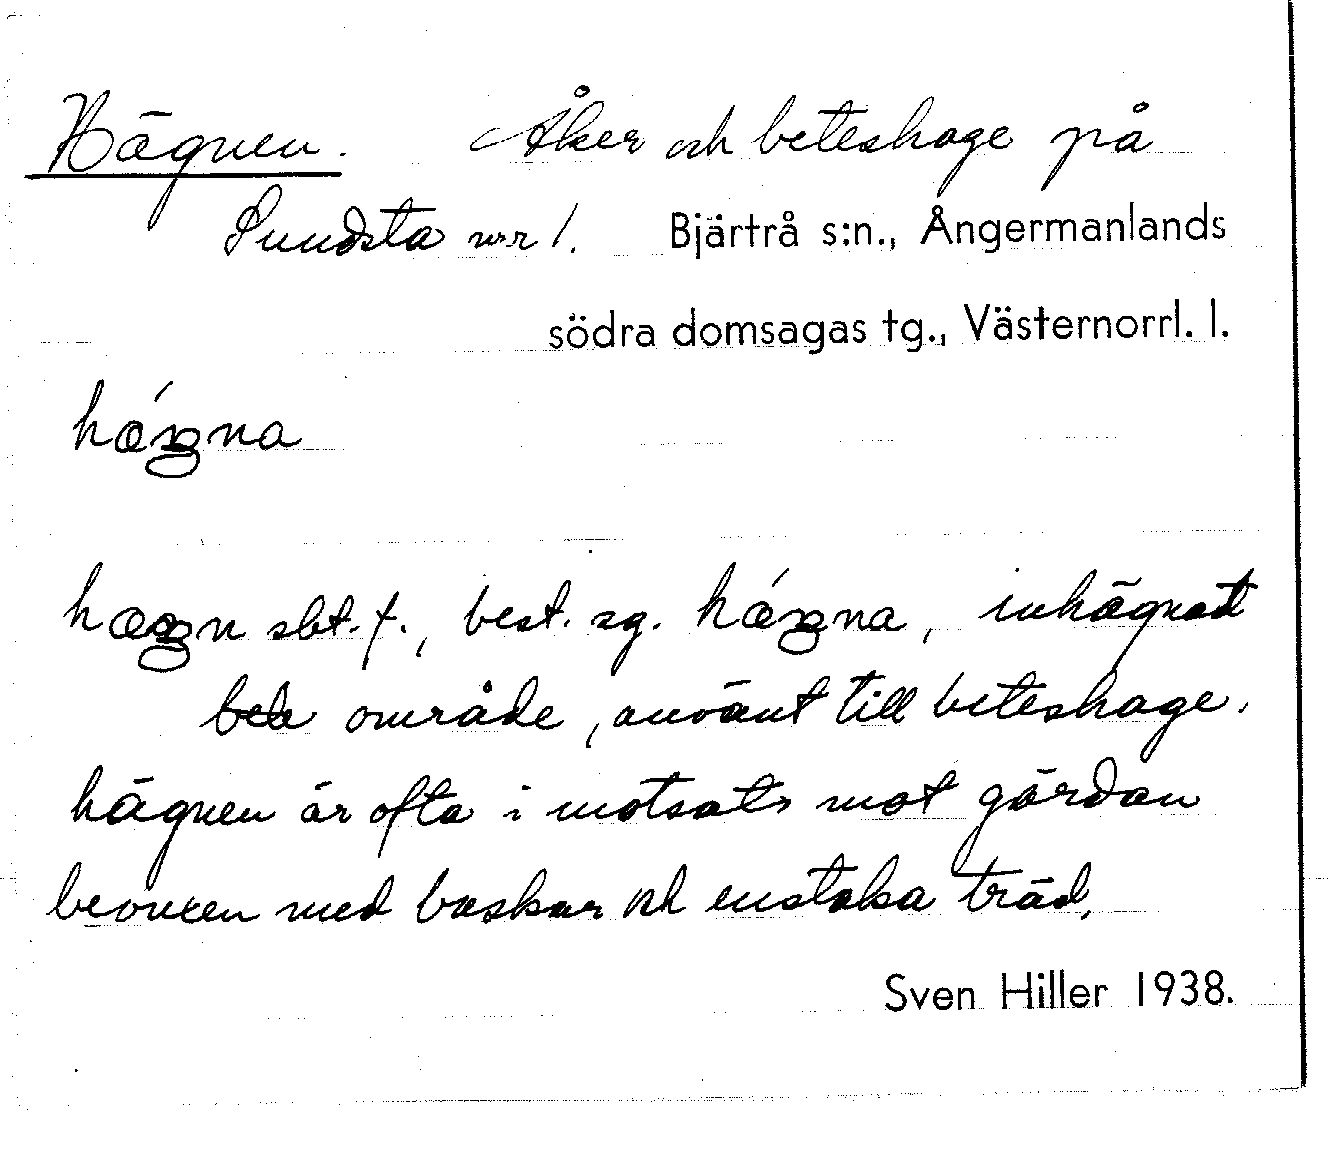 Hägnen. Åker och beteshage på
Sundsta nr 1. Bjärtrå s:n., Ångermanlands
södra domsagas tg., Västernorrl. l.
hǽŋna
hæŋn sbt. f., best. sg. hǽŋna, inhägnat
bete område, använt till beteshage.
hägnen är ofta i motsats mot gärdan
bevuxen med buskar och enstaka träd.
Sven Hiller 1938.